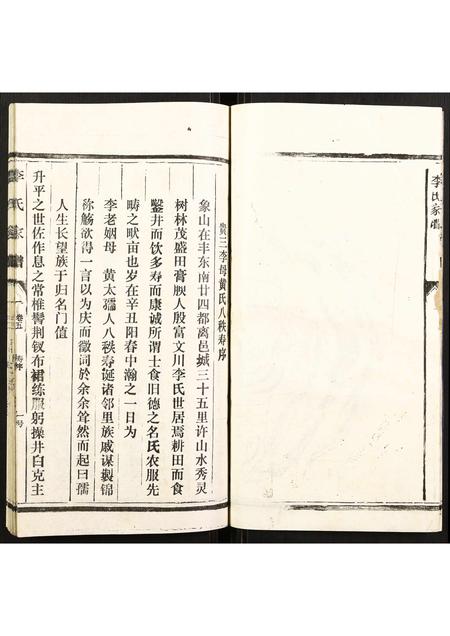 李氏家譜
贊三李母黄氏八秩寿序
象山在丰东南廿四都离邑城三十五里许山水秀灵
树林茂盛田膏腴人殷富文川李氏世居焉耕田而食
鑿井而饮多寿而康诚所谓士食旧德之名氏农服先
畴之畎亩也岁在辛丑阳春中瀚之一日为
李老姻母　黄太孺人八秩寿诞诸邻里族戚谋製锦
称觞欲得一言以为庆而徵词於余余耸然而起曰孺
人生长望族于归名门值
升平之世佐作息之常椎髻荆钗布裙练服躬操井臼克主
李氏家譜
卷五
寿序
一号